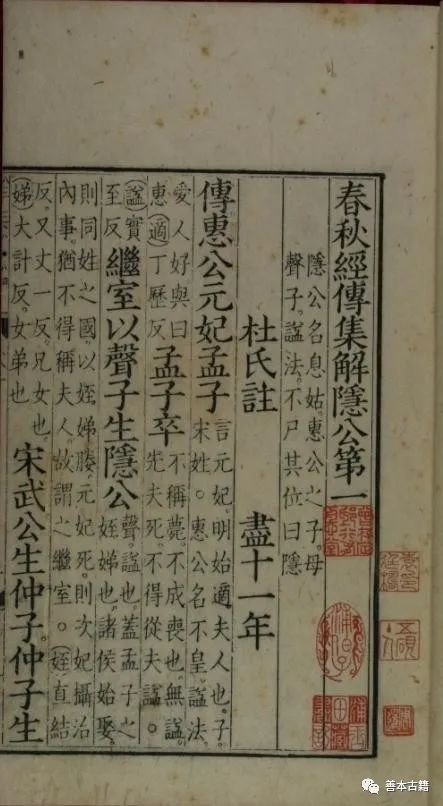 春秋經傳集解隱公第一
隱公名息姑。惠公之子。母
聲子。諡法。不尸其位曰隱
杜氏註 盡十一年
傳惠公元妃孟子
言元妃。明始適夫人也。子。
宋姓。惠公名不皇。諡法。
愛人好與曰
惠適丁歷反
孟子卒
不稱薨。不成喪也。無諡。
先夫死。不得從夫諡。
諡實
至反
繼室以聲子生隱公
聲。諡也。蓋孟子之
姪娣也。諸侯始娶。
則同姓之國。以姪娣媵。元妃死。則次妃攝治
內事。猶不得稱夫人。故謂之繼室。姪直結
反。又丈一反。兄女也
娣大計反。女弟也
宋武公生仲子。仲子生
善本古籍